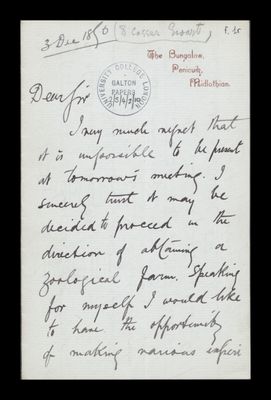 3 Dec 18 (8 Cossar Ewart) f. 15
The Bungalow,
Penicuik,
Midlothian.
UNIVERSITY COLLEGE LONDON
GALTON
PAPERS
Dear Sir
I very much regret that
it is impossible to be present
at tomorrow's meeting. I
sincerely trust it may be
decided to proceed in the
direction of obtaining a
zoological farm. Speaking
for myself I would like
to have the opportunity
of making various experi